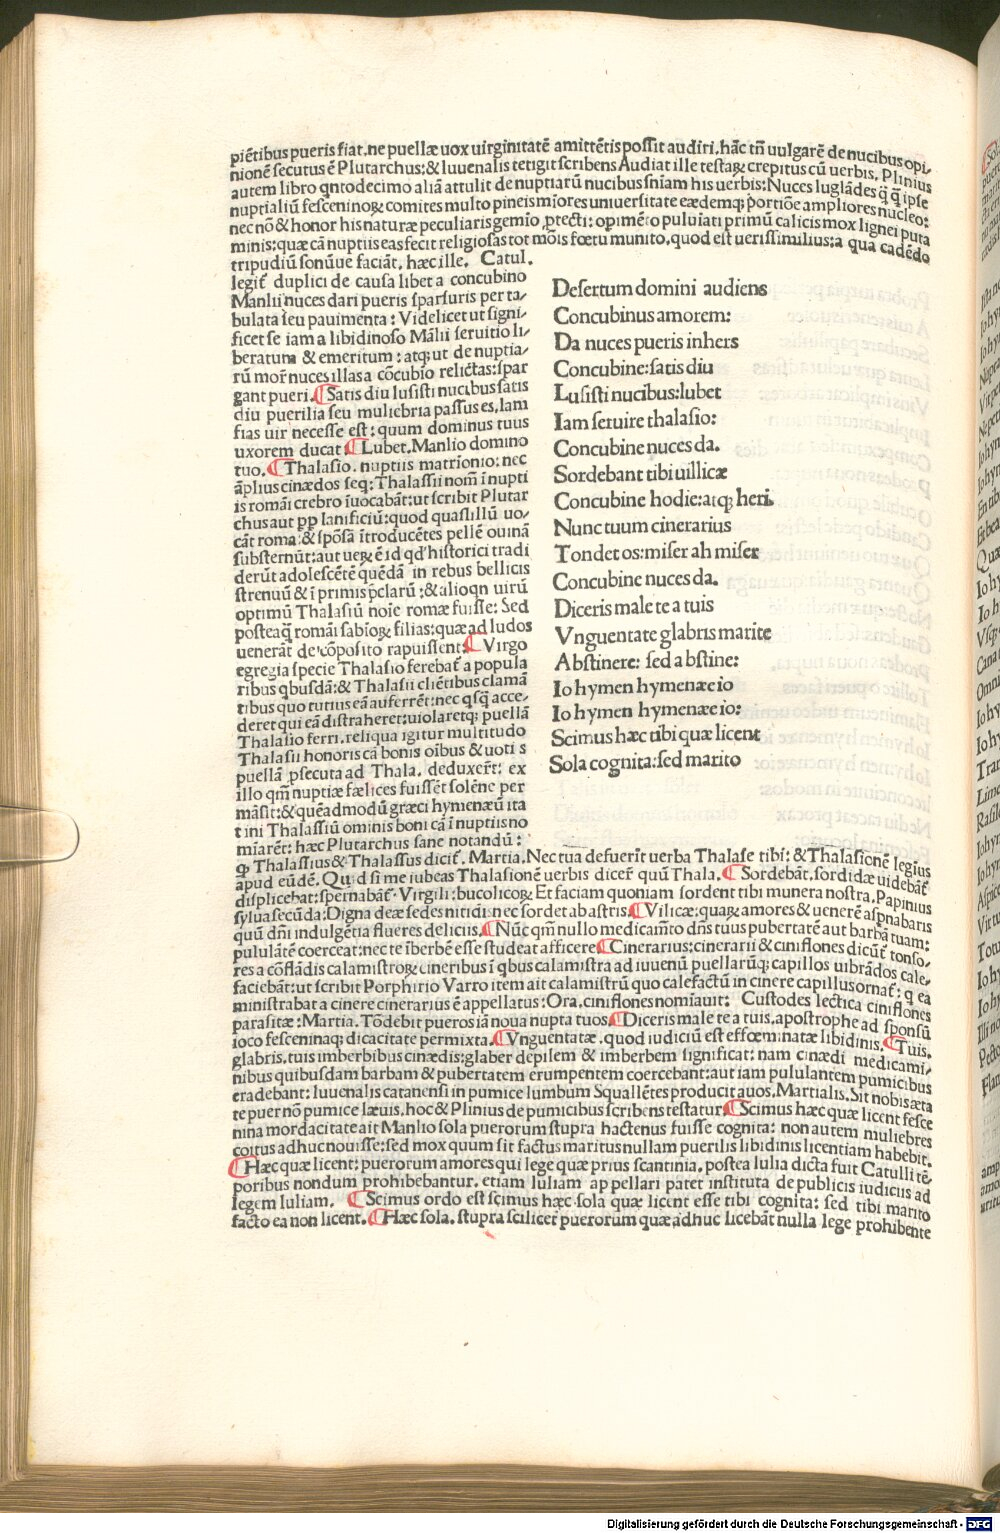 piētibus pueris fiat.ne puellæ uox uirginitatē amittētis possit audiri.hāc tñ uulgarē de nucibus opi-
nionē secutus ē Plutarchus:& Iuuenalis tetigit scribens Audiat ille testaꝝ crepitus cū uerbis. Plinius
autem libro qntodecimo aliā attulit de nuptiarū nucibus sniam his uerbis:Nuces Iuglādes q̄ q̄ ipse
nuptialiū fescēninoꝝ comites multo pineis miores uniuersitate eædemq; portiōe ampliores nucleo:
nec nō & honor his naturæ peculiaris gemio ꝓtecti: opimēto puluiati primū calicis mox lignei puta
minis:quæ cā nuptiis eas fecit religiosas tot mōis fœtu munito.quod est uerissimilius:a qua cadēdo
tripudiū sonūue faciāt. hæc ille. Catul.
legit̄ duplici de causa libet a concubino
Manlii nuces dari pueris sparsuris per ta-
bulata seu pauimenta: Videlicet ut signi-
ficet se iam a libidinoso Māli seruitio li-
beratum & emeritum: atq; ut de nuptia-
rū mor̄ nuces illas a cōcubio relictas:spar
gant pueri. ¶Satis diu lusisti nucibus satis
diu puerilia seu muliebria passus es,Iam
fias uir necesse est: quum dominus tuus
uxorem ducat ¶Lubet.Manlio domino
tuo. ¶Thalasio. nuptiis matrionio: nec
āplius cinædos seq: Thalassii nom̄ ī nupti
is romāi crebro īuocabāt:ut scribit Plutar
chus aut pp lanificiū:quod quasillū uo-
cāt roma:& spōsā ītroducētes pellē ouinā
substernūt:aut ueꝝ ē id qd' historici tradi
derūt adolescētē quēdā in rebus bellicis
strenuū & ī primis pclarū :& alioqn uirū
optimū Thalasiū noie romæ fuisse: Sed
posteaq̄ romāi sabioꝝ filias:quæ ad ludos
uenerāt de cōposito rapuissent: ¶Virgo
egregia specie Thalasio ferebat̄ a popula
ribus qbusdā:& Thalasii cliētibus clamā
tibus quo tutius eā auferrēt:nec qsq̄ acce-
deret qui eā distraheret:uiolaretq; puellā
Thalasio ferri.reliqua igitur multitudo
Thalasii honoris cā bonis oībus & uoti s
puellā psecuta ad Thala. deduxer̄t: ex
illo qm̄ nuptiæ fælices fuissēt solēne per
māsit:& quēadmodū græci hymenæū ita
t ini Thalassiū ominis boni cā ī nuptiis no
miarēt: hæc Plutarchus sane notandū :
Desertum domini audiens
Concubinus amorem:
Da nuces pueris inhers
Concubine:satis diu
Lusisti nucibus:lubet
Iam seruire thalasio:
Concubine nuces da.
Sordebant tibi uillicæ
Concubine hodie:atq; heri.
Nunc tuum cinerarius
Tondet os:miser ah miser
Concubine nuces da.
Diceris male te a tuis
Vnguentate glabris marite
Abstinere: sed abstine:
Io hymen hymenæe io
Io hymen hymenæe io:
Scimus hæc tibi quæ licent
Sola cognita:sed marito
ꝙ Thalassius & Thalassus dicit̄. Martia.Nec tua defuerīt uerba Thalase tibi: & Thalasionē legius
apud eūdē. Quid si me iubeas Thalasionē uerbis dicer̄ quū Thala. ¶Sordebāt.sordidæ uidebāt̄
displicebāt:spernabāt̄. Virgili:bucolicoꝝ Et faciam quoniam sordent tibi munera nostra. Papinius
sylua secūda:Digna deæ sedes nitidi:nec sordet ab astris. ¶Vilicæ:quaꝝ amores & uenerē aspnabaris
quū dñi indulgētia flueres deliciis. ¶Nūc qm̄ nullo medicam̄to dñs tuus pubertatē aut barbā tuam:
pululātē coerceat:nec te īberbē esse studeat afficere ¶Cinerarius:cinerarii & ciniflones dicūt̄ tonso-
res a cōflādis calamistroꝝ cineribus ī qbus calamistra ad iuuenū puellarūq; capillos uibrādos cale-
faciebāt:ut scribit Porphirio Varro item ait calamistrū quo calefactū in cinere capillus ornat̄: q ea
ministrabat a cinere cinerarius ē appellatus:Ora.ciniflones nomiauit: Custodes lectica ciniflones
parasitæ:Martia.Tōdebit pueros iā noua nupta tuos. ¶Diceris male te a tuis.apostrophe ad sponsū
ioco fesceninaq; dicacitate permixta. ¶Vnguentatæ.quod iudiciū est effœminatæ libidinis. ¶Tuis.
glabris.tuis imberbibus cinædis:glaber depilem & imberbem significat: nam cinædi medicami-
nibus quibusdam barbam & pubertatem erumpentem coercebant:aut iam pululantem pumicibus
eradebant: Iuuenalis catanensi in pumice lumbum Squallētes producit auos.Martialis.Sit nobis æta
te puer nō pumice læuis.hoc & Plinius de pumicibus scribens testatur. ¶Scimus hæc quæ licent fesce
nina mordacitate ait Manlio sola puerorum stupra hactenus fuisse cognita: non autem muliebres
coitus adhuc nouisse:sed mox quum sit factus maritus nullam puerilis libidinis licentiam habebit.
¶Hæc quæ licent: puerorum amores qui lege quæ prius scantinia. postea Iulia dicta fuit Catulli tē-
poribus nondum prohibebantur. etiam Iuliam appellari patet instituta de publicis iudiciis ad
legem Iuliam. ¶Scimus ordo est scimus hæc sola quæ licent esse tibi cognita: sed tibi marito
facto ea non licent. ¶Hæc sola. stupra scilicet puerorum quæ adhuc licebāt nulla lege prohibente
Digitalisierung gefördert durch die Deutsche Forschungsgemeinschaft - DFG